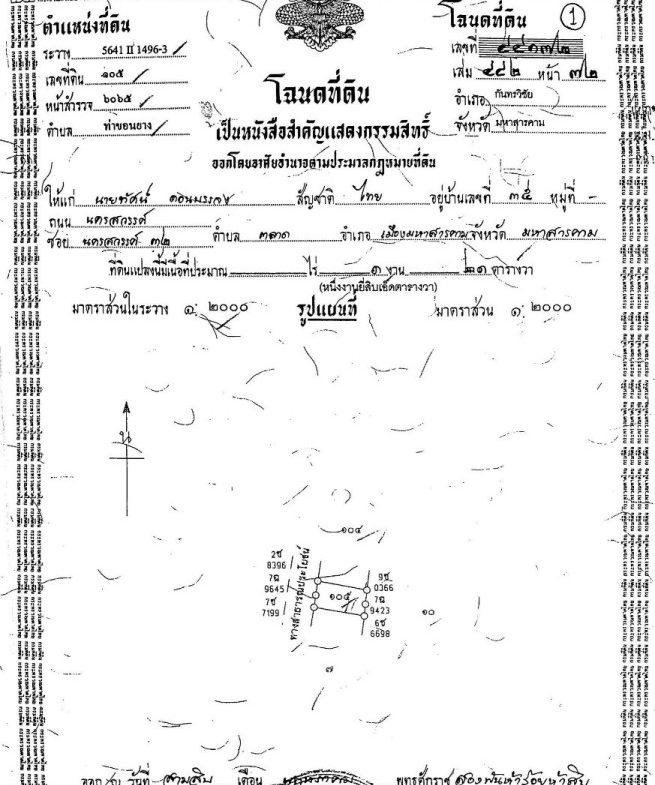 ตำแหน่งที่ดิน
ระวาง 5641 II 1496-3
เลขที่ดิน ๑๐๕
หน้าสำรวจ ๖๐๖๕
ตำบล ท่าขอนยาง
โฉนดที่ดิน
เป็นหนังสือสำคัญแสดงกรรมสิทธิ์
ออกโดยอาศัยอำนาจตามประมวลกฎหมายที่ดิน
โฉนดที่ดิน 1
เลขที่
เล่ม ๔๔๒ หน้า ๗๒
อำเภอ กันทรวิชัย
จังหวัด มหาสารคาม
ให้แก่ นายทัศน์ สัญชาติ ไทย อยู่บ้านเลขที่ ๓๕ หมู่ที่ -
ถนน นครสวรรค์
ซอย นครสวรรค์ ๓๒ ตำบล ตลาด อำเภอ เมืองมหาสารคาม จังหวัด มหาสารคาม
ที่ดินแปลงนี้มีเนื้อที่ประมาณ ไร่ ๑ งาน ๒๑ ตารางวา
(หนึ่งงานยี่สิบเอ็ดตารางวา)
มาตราส่วนในระวาง ๑: ๒๐๐๐ รูปแผนที่ มาตราส่วน ๑: ๒๐๐๐
น
๑๐๔
2ซ
8396
7ฉ
9645
7ซ
7199
ทางสาธารณประโยชน์
๑๐๕
9ซ
0366
7ฉ
9423
6ซ
6698
๑๐
๗
ออก ณ วันที่ สามสิบ เดือน พฤษภาคม พุทธศักราช สองพันห้าร้อยห้าสิบ